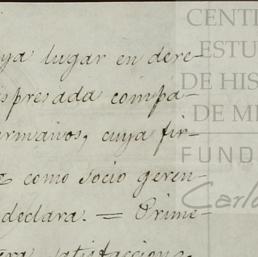 ya lugar en dere-
spresada compa-
ermanos, cuya fir-
como socio geren-
declara. = Prime-
satisfaccion
CENT
ESTU
DE HIS
DE M
FUND
Carlo